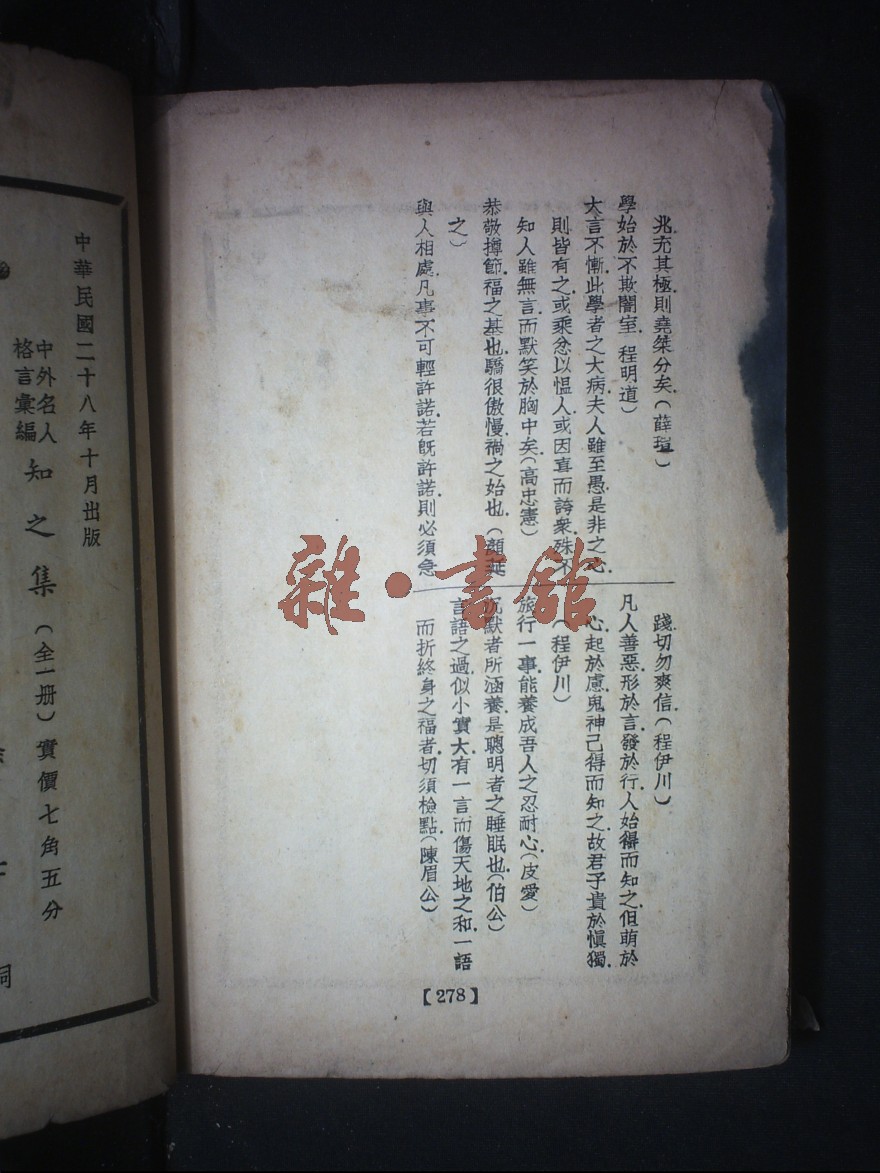 兆充其極.則堯桀分矣.（薛瑄）
學始於不欺闇室.程明道）
大言不慚.此學者之大病.夫人雖至愚.是非之心.
則皆有之.或乘忿以慍人.或因喜而誇衆.殊不
知人雖無言.而默笑於胸中矣.（高忠憲）
恭敬撙節.福之基也.驕很傲慢.禍之始也.（顏延
之）
與人相處.凡事不可輕許諾.若既許諾.則必須急
踐.切勿爽信.（程伊川）
凡人善惡.形於言.發於行.人始得而知之.但萌於
心.起於慮.鬼神己得而知之.故君子貴於愼獨.
（程伊川）
旅行一事.能養成吾人之忍耐心.（皮愛）
沉默者所涵養.是聰明者之睡眠也.（伯公）
言語之過.似小實大.有一言而傷天地之和.一語
而折終身之福者.切須檢點.（陳眉公）
【278】
中華民國二十八年十月出版
中外名人
格言彙編
知之集（全一册）實價七角五分
雜·書館